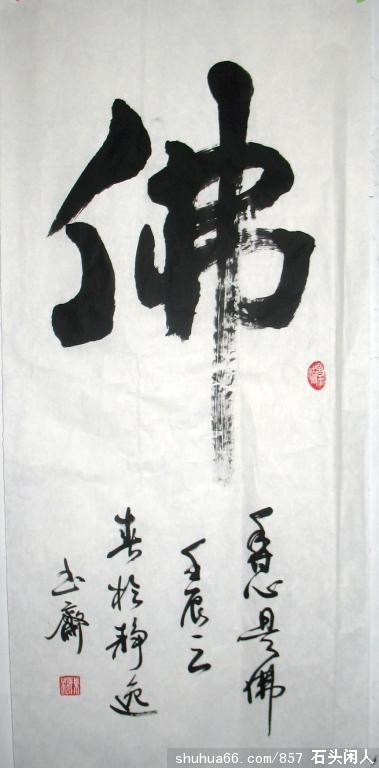 佛
心是佛
壬辰之
春於静逸
书齋
shuhua66.com/857 石头闲人